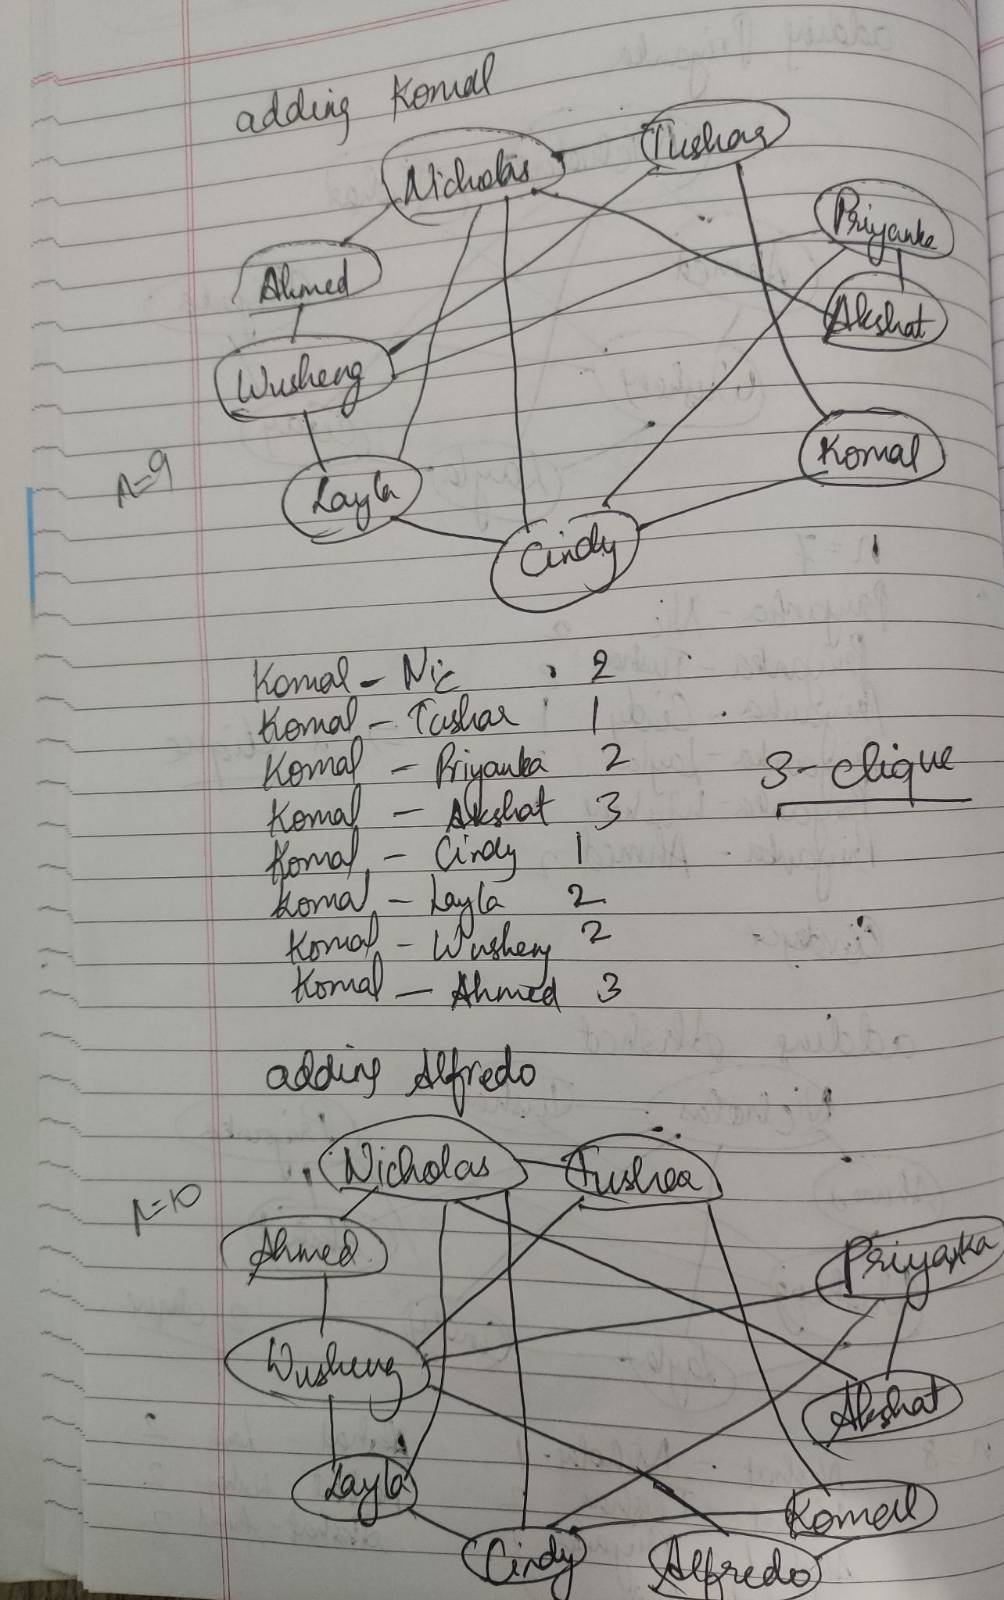 adding Komal
Nicholas
Tushar
Priyanka
Ahmed
Akshat
Wusheng
Komal
n=9
Layla
Cindy
Komal - Nic 2
Komal - Tushar 1
Komal - Priyanka 2
3-clique
Komal - Akshat 3
Komal - Cindy 1
Komal - Layla 2
Komal - Wusheng 2
Komal - Ahmed 3
adding Alfredo
Nicholas
Tushar
n=10
Ahmed
Priyanka
Wusheng
Akshat
Layla
Komal
Cindy
Alfredo